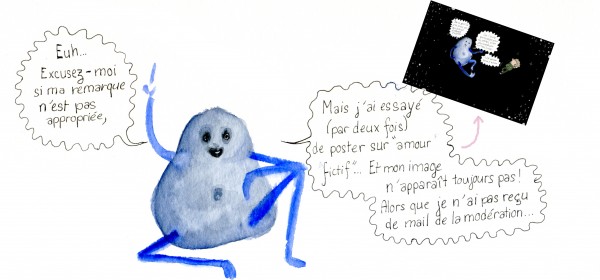 Euh...
Excusez-moi
si ma remarque
n'est pas
appropriée,
Mais j'ai essayé
(par deux fois)
de poster sur "amour
fictif"... Et mon image
n'apparaît toujours pas !
Alors que je n'ai pas reçu
de mail de la modération...